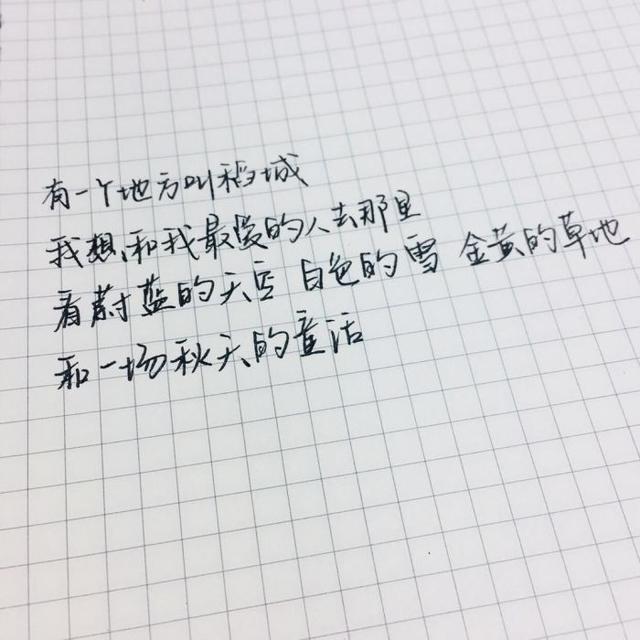 有一个地方叫稻城
我想和我最爱的人去那里
看蔚蓝的天空 白色的雪 金黄的草地
和一场秋天的童话